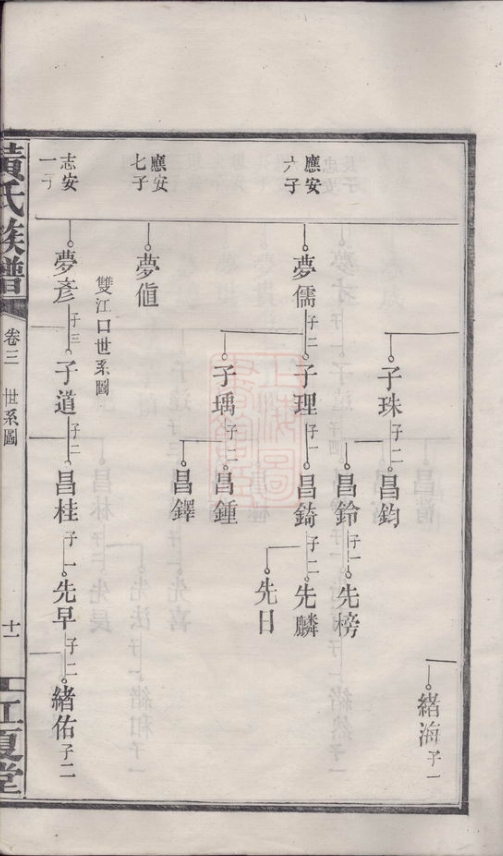 緒海子一
子珠子二昌鈞
昌鈴子一先榜
應安六子
夢儒子二子理子一昌錡子二先麟
先日
子瑀子二昌鍾
昌鐸
應安七子
夢值
雙江口世系圖
志安一子
夢彥子三子道子二昌桂子一先早子二緒佑子二
黃氏族譜
卷三
世系圖
十一
江夏堂